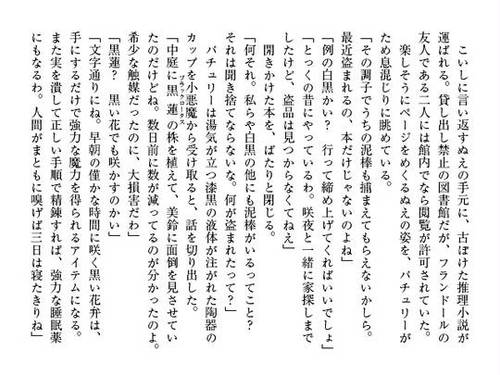 こいしに言い返すぬえの手元に、古ぼけた推理小説が
運ばれる。貸し出し禁止の図書館だが、フランドールの
友人である二人には館内でなら閲覧が許可されていた。
楽しそうにページをめくるぬえの姿を、パチュリーが
ため息混じりに眺めている。
「その調子でうちの泥棒も捕まえてもらえないかしら。
最近盗まれるの、本だけじゃないのよね」
「例の白黒かい？　行って締め上げてくればいいでしょ」
「とっくの昔にやっているわ。咲夜と一緒に家探しまで
したけど、盗品は見つからなくてねえ」
開きかけた本を、ぱたりと閉じる。
「何それ。私らや白黒の他にも泥棒がいるってこと？
それは聞き捨てならないな。何が盗まれたって？」
パチュリーは湯気が立つ漆黒の液体が注がれた陶器の
カップを小悪魔から受け取ると、話を切り出した。
「中庭に黒蓮の株を植えて、美鈴に面倒を見させてい
ブラックロータス
たのだけどね。数日前に数が減ってるのが分かったのよ。
希少な触媒だったのに、大損害だわ」
「黒蓮？　黒い花でも咲かすのかい」
「文字通りにね。早朝の僅かな時間に咲く黒い花弁は、
手にするだけで強力な魔力を得られるアイテムになる。
また実を潰して正しい手順で精錬すれば、強力な睡眠薬
にもなるわ。人間がまともに嗅げば三日は寝たきりね」